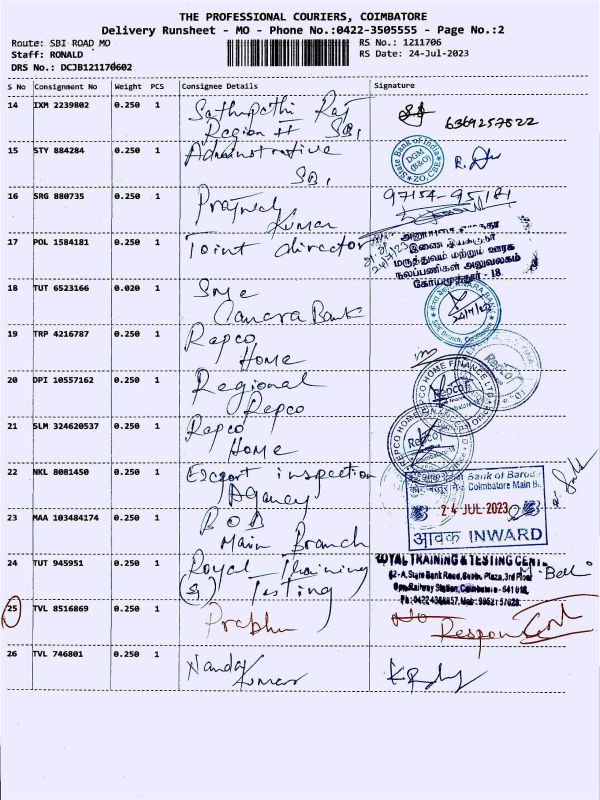 THE PROFESSIONAL COURIERS, COIMBATORE
Delivery Runsheet - MO - Phone No.:0422-3505555 - Page No.:2
Route: SBI ROAD MO
Staff: RONALD
DRS No.: DCJB121170602
RS No.: 1211706
RS Date: 24-Jul-2023
S No Consignment No Weight PCS Consignee Details Signature
14 IXM 2239802 0.250 1 Sathupathi Raj
Region II SBI
6369257822
15 STY 884284 0.250 1 Administrative
SBI
State Bank of India
DGM
(B&O)
ZO, CBE
16 SRG 880735 0.250 1 Prajwal
Kumar
97154-95181
17 POL 1584181 0.250 1 Joint director
24/7/23
இணை இயக்குநர்
மருத்துவம் மற்றும் ஊரக
நலப்பணிகள் அலுவலகம்
கோயமுத்தூர் - 18.
18 TUT 6523166 0.020 1 SME
Canara Bank
CANARA BANK
24/7/23
19 TRP 4216787 0.250 1 Repco
Home
20 DPI 10557162 0.250 1 Regional
Repco
REPCO HOME FINANCE LTD
Repco
21 SLM 324620537 0.250 1 Repco
Home
REPCO HOME
Repco
22 NKL 8081450 0.250 1 Export inspection
Agancy
Bank of Baroda
Coimbatore Main B.
24 JUL 2023
आवक INWARD
23 MAA 103484174 0.250 1 BOB
Main Branch
24 TUT 945951 0.250 1 Royal Training
& Testing
ROYAL TRAINING & TESTING CENT
62-A, State Bank Road, Plaza, 3rd Floor
Opp. Railway Station, Coimbatore - 641 018.
25 TVL 8516869 0.250 1 Prabhu
No
Respon
26 TVL 746801 0.250 1 Nanda
Kumar